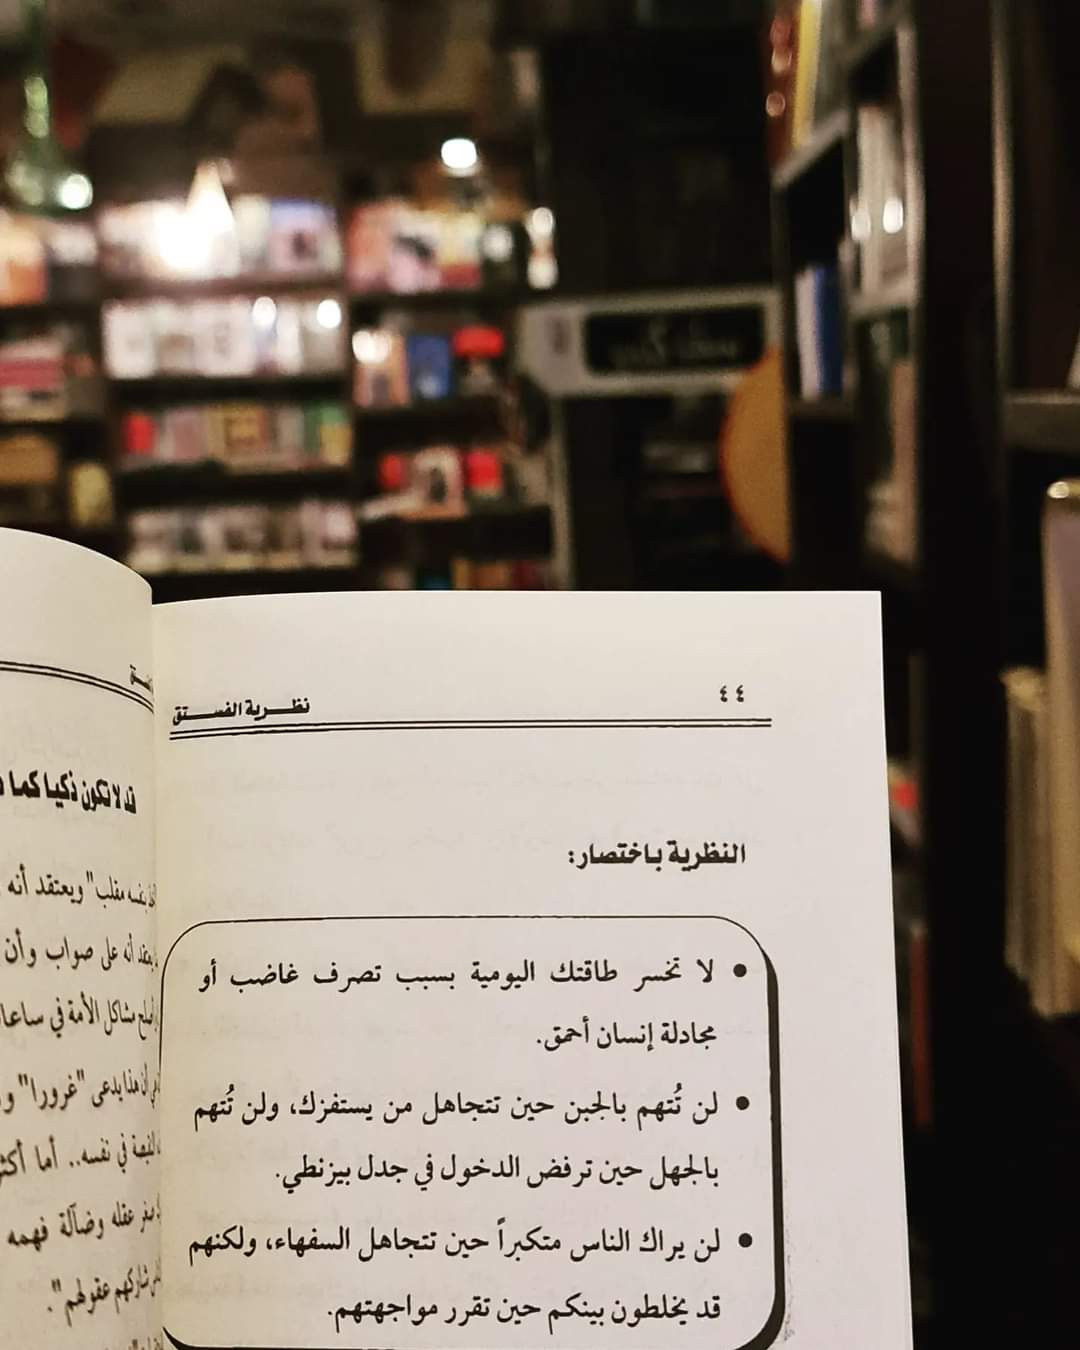 ٤٤
نظرية الفستق
النظرية باختصار:
• لا تخسر طاقتك اليومية بسبب تصرف غاضب أو
مجادلة إنسان أحمق.
• لن تُتهم بالجبن حين تتجاهل من يستفزك، ولن تُتهم
بالجهل حين ترفض الدخول في جدل بيزنطي.
• لن يراك الناس متكبراً حين تتجاهل السفهاء، ولكنهم
قد يخلطون بينكم حين تقرر مواجهتهم.
قد لا تكون ذكيا كما
مقلب" ويعتقد أنه
أنه على صواب وأن
مشاكل الأمة في ساعات
أن هذا يدعى "غرورا"
في نفسه.. أما أكثر
صغر عقله وضآلة فهمه
شاركهم عقولهم".